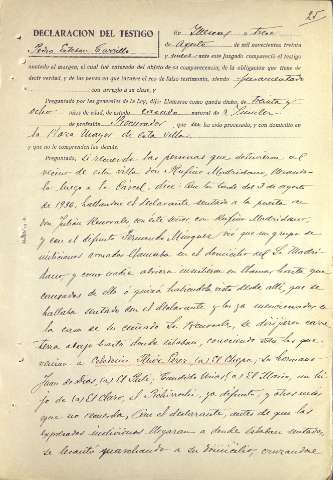 25
DECLARACION DEL TESTIGO
Pedro Esteban Carrillo
En Illescas a trece
de Agosto de mil novecientos treinta
y nueve ante este Juzgado compareció el testigo
anotado al margen, el cual fué enterado del objeto de su comparecencia, de la obligación que tiene de
decir verdad, y de las penas en que incurre el reo de falso testimonio, siendo juramentado
con arreglo a su clase, y
Preguntado por las generales de la ley, dijo: Llamarse como queda dicho, de treinta y
ocho años de edad, de estado casado natural de
de profesión Procurador que ha sido procesado, y con domicilio en
la Plaza Mayor de esta villa
y que no le comprenden las demás.
Preguntado, si recuerda las personas que detuvieron al
vecino de esta villa don Rufino Madridano,
luego a la Carcel, dice: Que la tarde del 3 de agosto
de 1936, hallandose el declarante sentado a la puerta de
don Julian con este señor con Rufino Madridano,
y con el difunto Fernando Minguez vió que un grupo de
milicianos armados llamaba en el domicilio del Sr. Madri-
dano, y como nadie abriera insistieron en llamar hasta que
cansados de ello o quizá habiendole visto desde allí, que se
hallaba sentado con el declarante y los ya mencionados a
la casa de su cuñado Sr. se dirijieron carre-
tera abajo hasta donde estaban, conociendo entre los que
venian a Perez, (a) El Chepa, su hermano
Juan de Dios, (a) El Pele, Candido (a) El Maria, un hi-
jo de (a) El Claro, el ya difunto, y otros más
que no recuerda. Que el declarante, antes de que los
expresados individuos llegaran a donde estaban sentados,
se levantó marchando a su domicilio, cruzandose